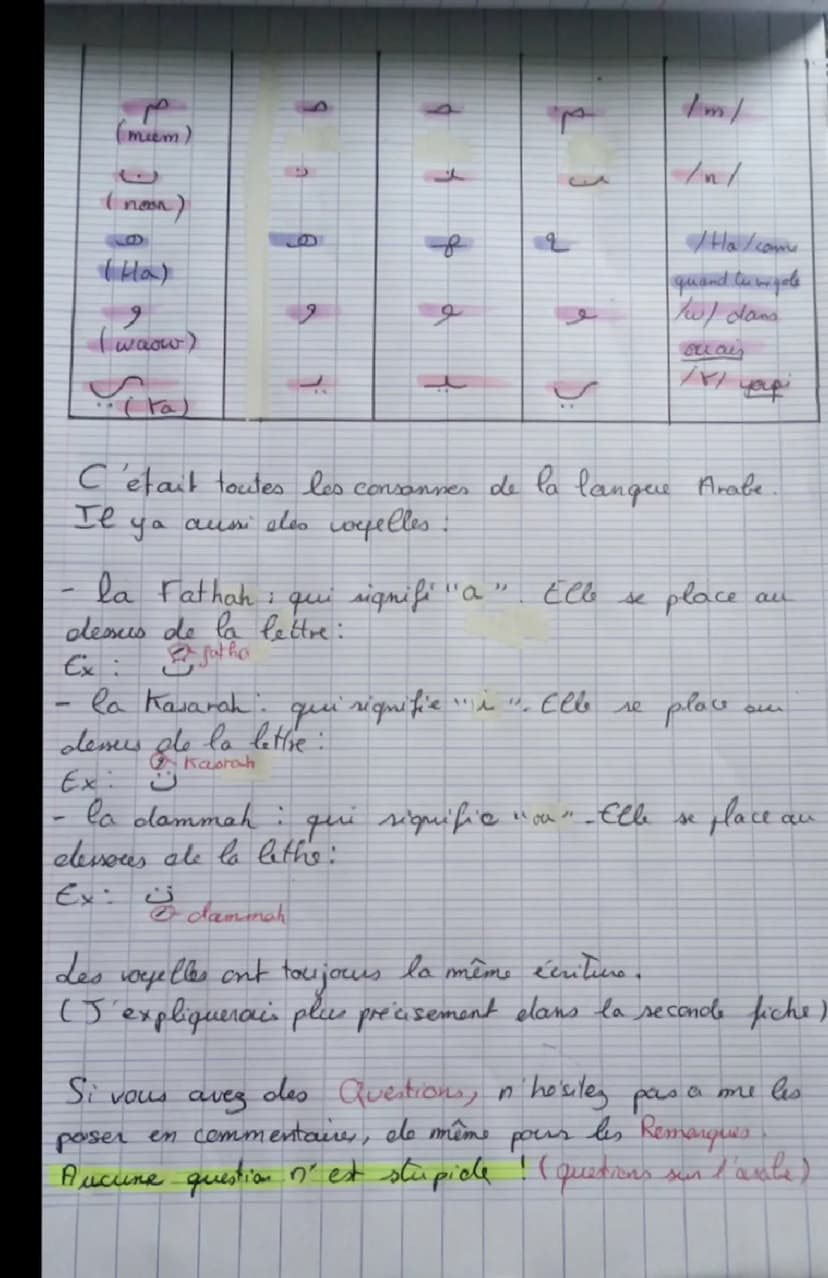 م مـ ـمـ ـم /m/
(miem)
ن نـ ـنـ ـن /n/
(noon)
ه هـ ـهـ ـه /Ha/ comme
(Ha) quand tu rigole
و و ـو ـو /w/ dans
(waow) ouais
ي يـ ـيـ ـي /Y/ yapi
(Ya)
C'était toutes les consonnes de la langue Arabe.
Il y a aussi des voyelles :
- la Fathah : qui signifi "a". Elle se place au
dessus de la lettre :
Ex : fatha
- la Kasarah : qui signifie "i". Elle se place au
dessus de la lettre :
Kasrah
Ex :
- la dammah : qui signifie "ou". Elle se place au
dessous de la lettre :
Ex :
dammah
Les voyelles ont toujours la même écriture.
(J'expliquerais plus précisement dans la seconde fiche)
Si vous avez des Questions, n'hésitez pas a me les
poser en commentaire, de même pour les Remarques.
Aucune question n'est stupide ! (questions sur l'arabe)